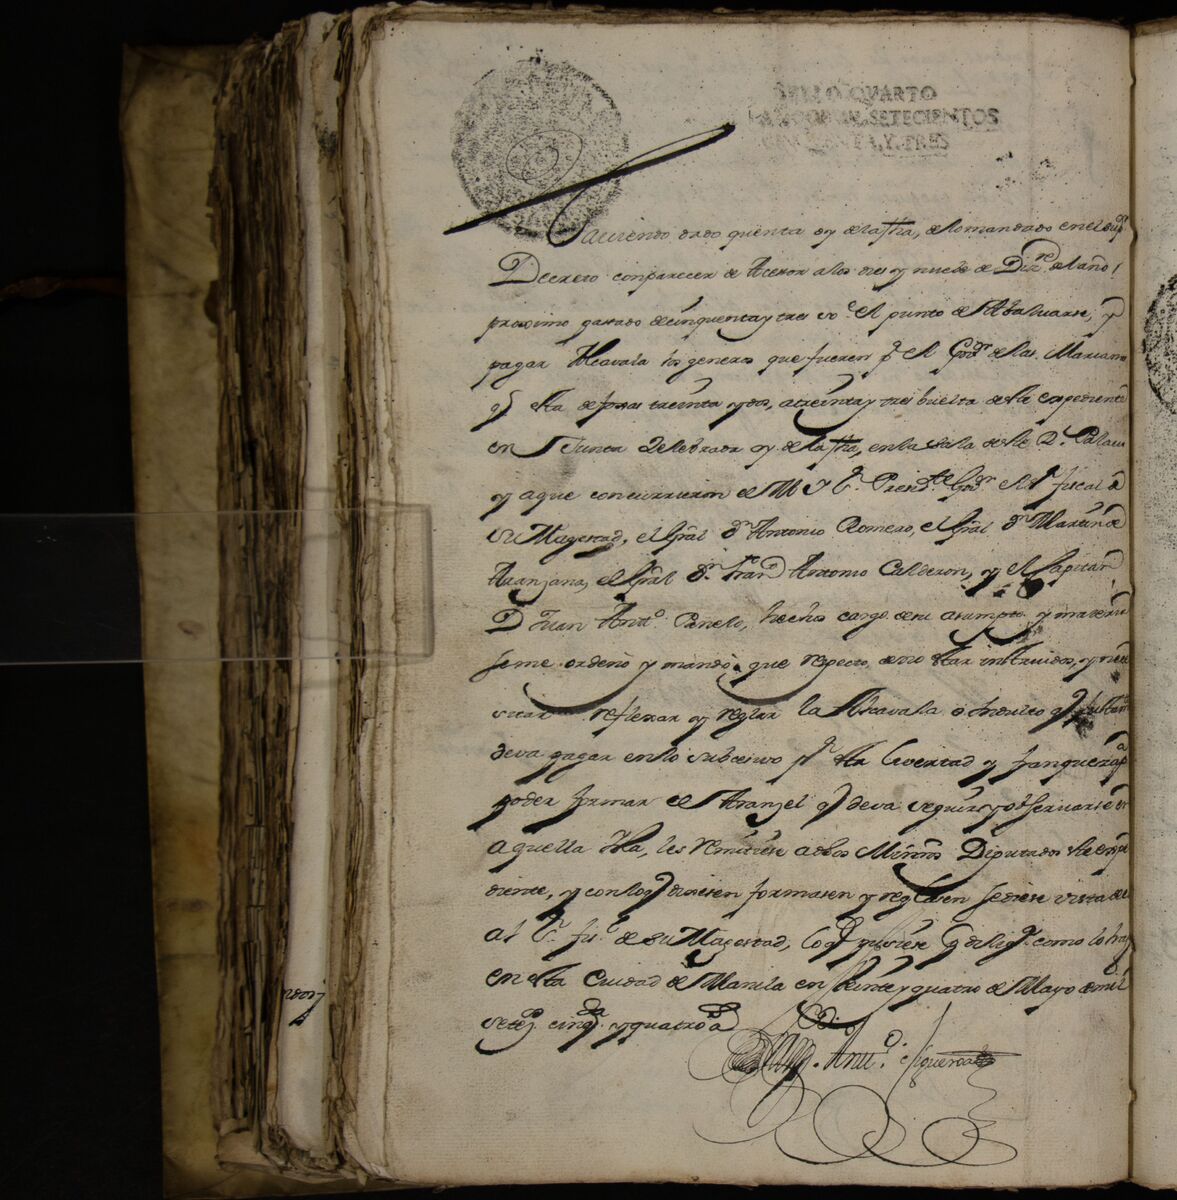 SELLO QVARTO
AÑO DE MIL SETECIENTOS
CINCVENTA Y TRES
Haviendo dado quenta oy dela fha, delo mandado en el
Decreto con parecer de Acesor a los dies y nuebe de Diz.re del año
proximo pasado de cinquenta y tres so.e el punto de Abaluarse, y
pagar Alcavala los generos que fueren p.a el Gov.or de las Marianas
q.e está de foxas treinta y dos, a treinta y tres buelta de este expediente
en Junta Zelebrada oy dela fha, en la Sala de este R.l Palacio
y a que concurrieron el M Y S.r Presid.te Gov.or el S.r fiscal de
su Magestad, el Grãl D.n Antonio Romero, el Grãl D.n Martin de
Aranjana, el Grãl D.n Fran.co Antonio Calderon, y el Capitan
D Juan Ant.o Panelo, hecho cargo de su asumpto y materia
se me ordenó y mandó, que respecto, de no estar instruidos, y
reflexar y reglar la Alcavala o Indulto q.e
deva pagar en lo subcesivo p.r la livertad y franqueza p.a
poder formar el Aranzel q.e deva seguirse y observarse en
aquella Isla, les remitiese a dhos Minros Diputados este expe
diente, y con lo q.e dixesen formasen y reglasen se diese vista de el
al S.r fis.l de su Magestad, lo q.e pusiese p.r dilig.a como lo hago
en esta Ciudad de Manila en Veinte y quatro de Mayo de mil
setez.os cinq.ta y quatro a.s
Ant.o Figueroa